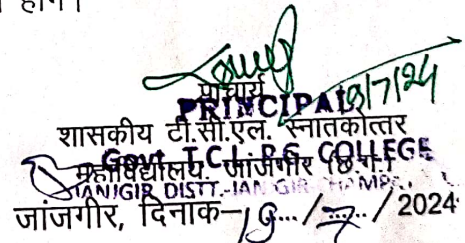 होंगे।
प्राचार्य
PRINCIPAL 19/7/24
शासकीय टी.सी.एल. स्नातकोत्तर
Govt. T.C.L. P.G. COLLEGE
महाविद्यालय. जांजगीर छ.ग.
JANJGIR DISTT.-JANJGIR-CHAMPA
जांजगीर, दिनाक–19... /..7.. / 2024